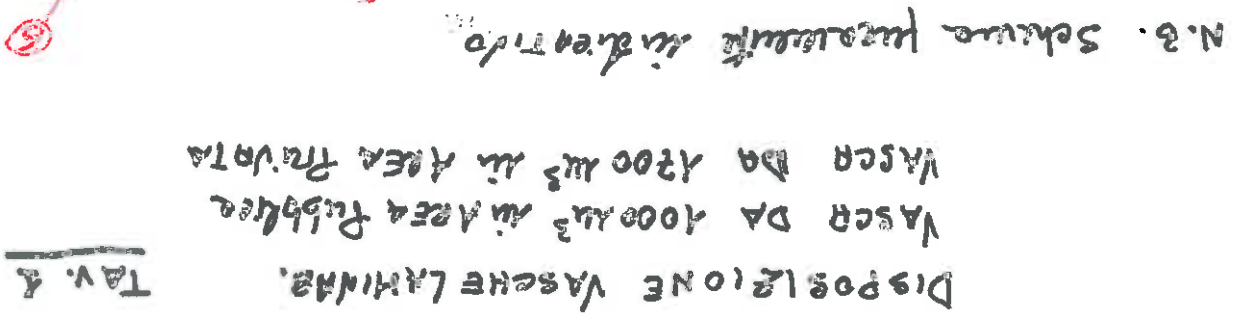 DISPOSIZIONE VASCHE LAMINAZ. TAV. 1
VASCA DA 1000 m³ in AREA Pubblica
VASCA DA 1700 m³ in AREA PRIVATA
N.B. Schema puramente indicativo
5